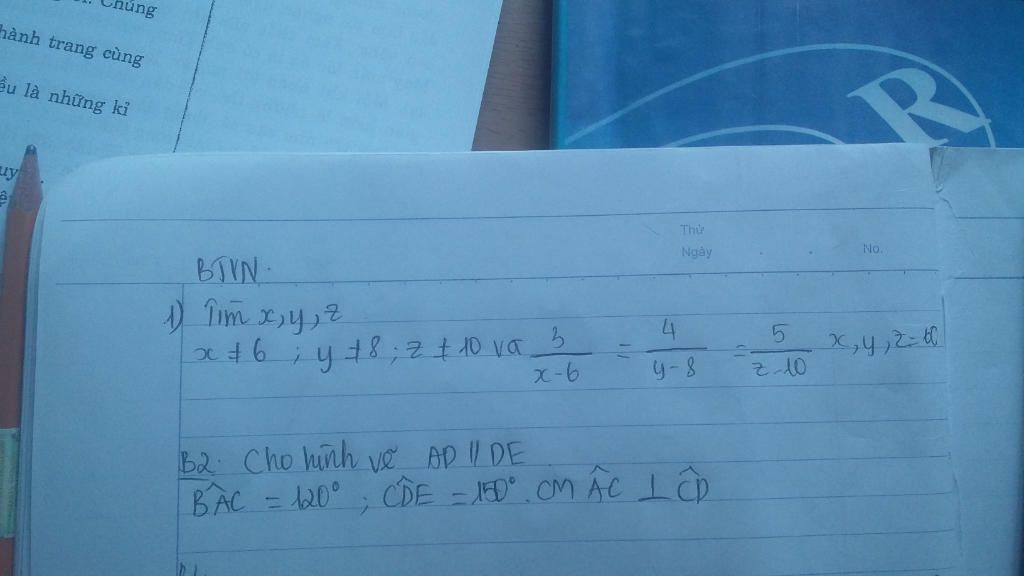 Chúng
hành trang cùng
ều là những kỉ
uy
R
Thứ
Ngày
No.
BTVN.
1) Tìm x, y, z
x ≠ 6 ; y ≠ 8 ; z ≠ 10 và 3/(x-6) = 4/(y-8) = 5/(z-10) x, y, z =
B2: Cho hình vẽ AD // DE
BÂC = 120° ; CD̂E = 150°. CM ÂC ⊥ ĈD